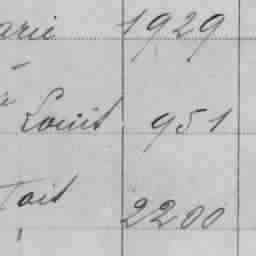 arie 1929
Louit 951
Toit 2200